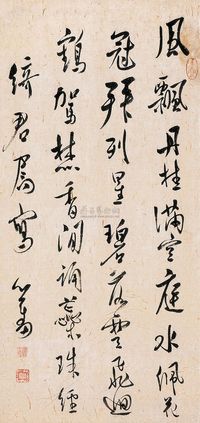 風飄丹桂滿空庭水佩花
冠拜列星碧落雲飛迴
鶴駕焚香閒誦蘂珠經
綺君屬寫 心畬